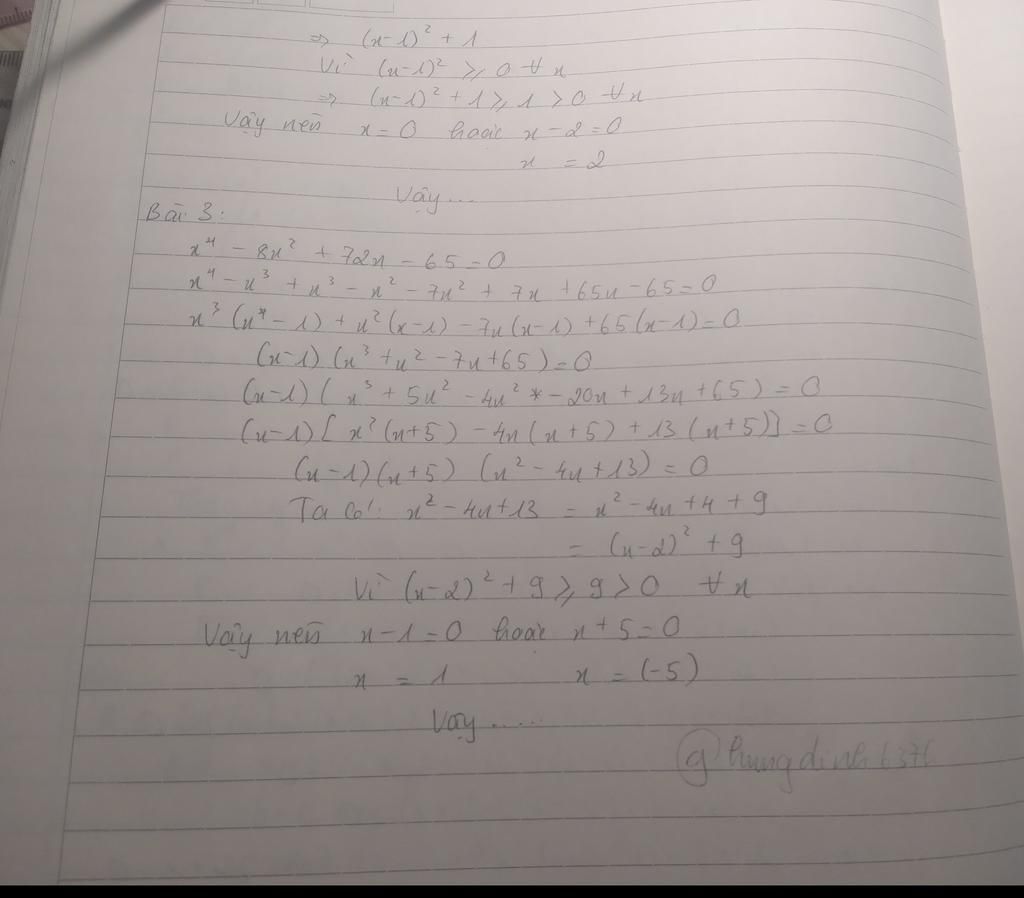 => (x-1)² + 1
Vì (x-1)² ≥ 0 ∀ x
=> (x-1)² + 1 ≥ 1 > 0 ∀ x
Vậy nên x = 0 hoặc x - 2 = 0
x = 2
Vậy...
Bài 3:
x⁴ - 8x² + 72x - 65 = 0
x⁴ - x³ + x³ - x² - 7x² + 7x + 65x - 65 = 0
x³ (x - 1) + x² (x-1) - 7x (x-1) + 65 (x-1) = 0
(x-1) (x³ + x² - 7x + 65) = 0
(x-1) ( x³ + 5x² - 4x² - 20x + 13x + 65) = 0
(x-1) [ x² (x+5) - 4x (x+5) + 13 (x+5)] = 0
(x-1) (x+5) (x² - 4x + 13) = 0
Ta có: x² - 4x + 13 = x² - 4x + 4 + 9
= (x-2)² + 9
Vì (x-2)² + 9 ≥ 9 > 0 ∀ x
Vậy nên x - 1 = 0 hoặc x + 5 = 0
x = 1 x = (-5)
Vậy .....